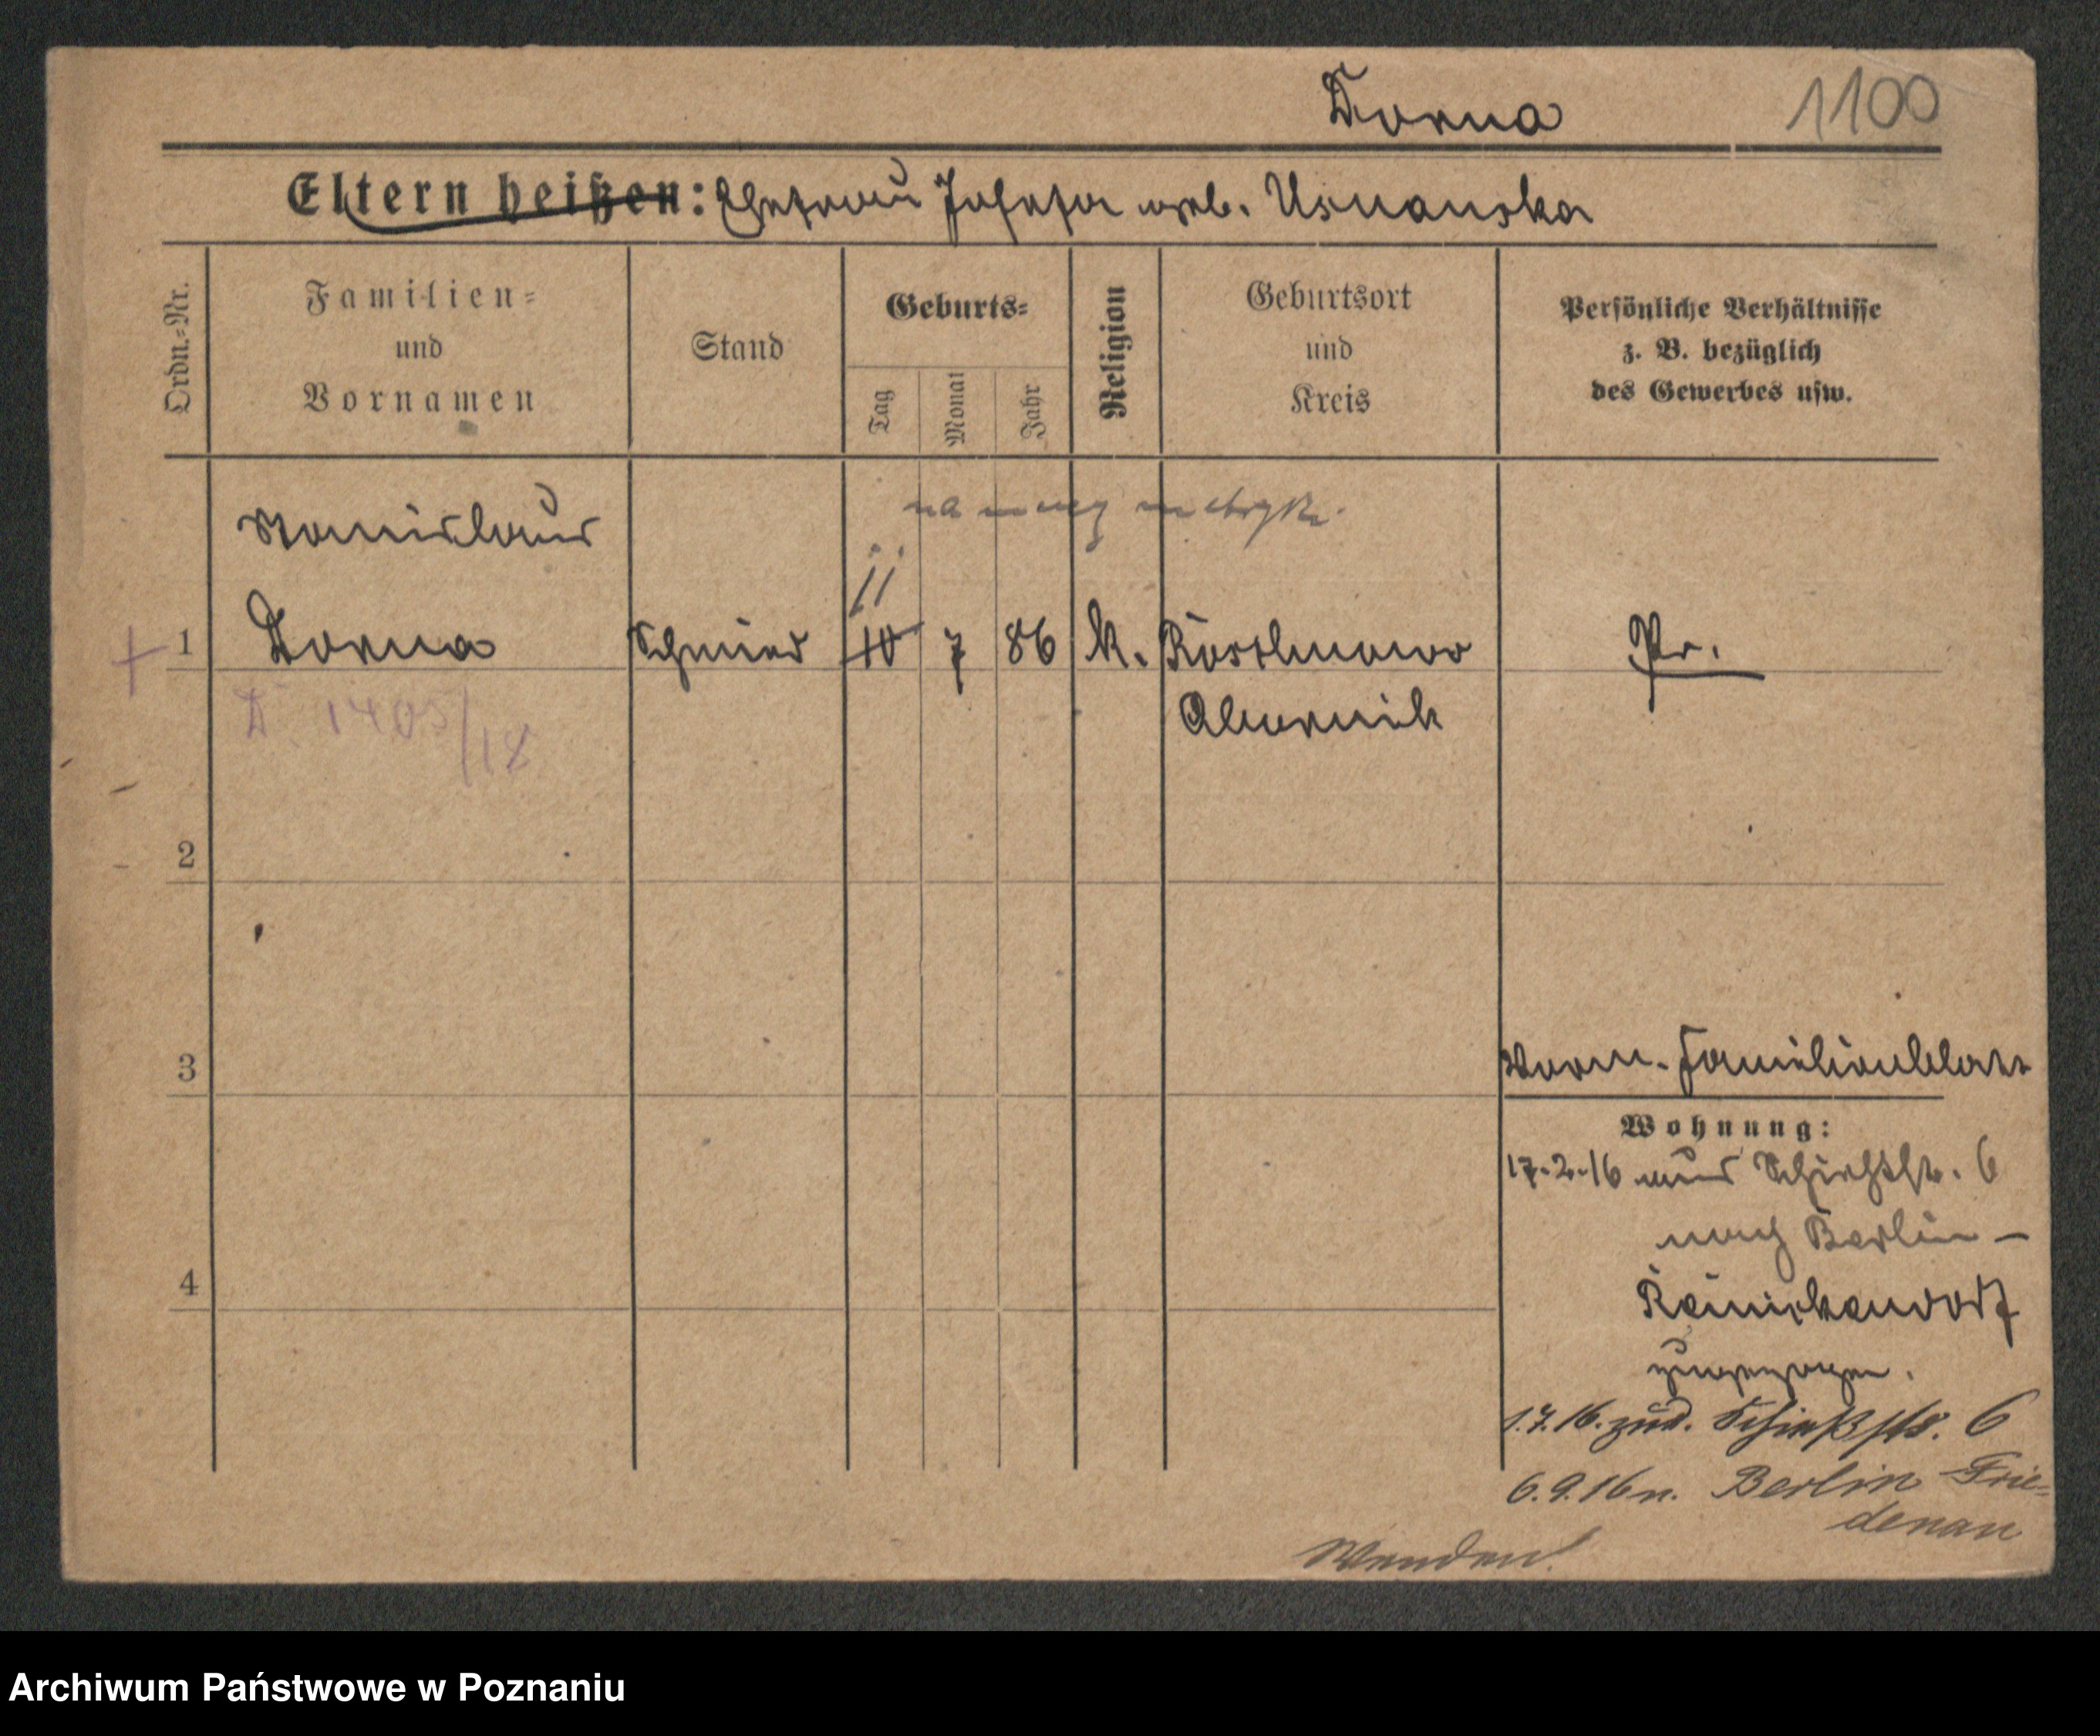 Dorna
1100
Eltern heißen: Ehefrau Josefa geb. Usnanska
Ordn.=Nr.
Familien=
und
Vornamen
Stand
Geburts=
Tag
Monat
Jahr
Religion
Geburtsort
und
Kreis
Persönliche Verhältnisse
z. B. bezüglich
des Gewerbes usw.
na mocy metryki
Stanislaus
11
1 Dorna Schmied 10 7 86 k. Pr.
D. 1405/18
2
3
Familienblatt
Wohnung:
17.2.16 aus Schießstr. 6
nach Berlin-
Reinickendorf
4
1.7.16. zur. Schießstr. 6
6.9.16 n. Berlin Frie=
denau
Wenden!
Archiwum Państwowe w Poznaniu